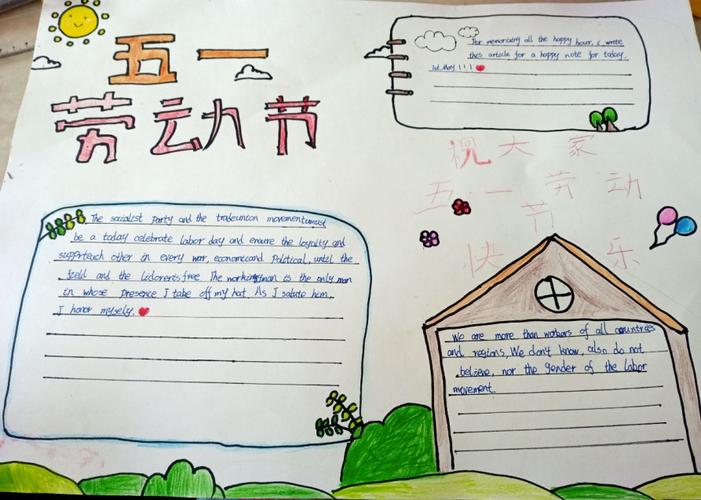 五一
劳动节
For memorizing all the happy hour, I write
this article for a happy note for today
1st May!!!
祝大家
五一劳动
节
快乐
The socialist party and the tradeunion movementumust
be a today celebrate labor day and ensure the loyalty and
supporteach other in every war, economicand political, until the
field and the lidorerisfree. The workingman is the only man
in whose presence I take off my hat. As I salute him,
I honor myself.
We are more than workers of all countries
and regions, We don't know, also do not
believe, nor the gender of the labor
movement.